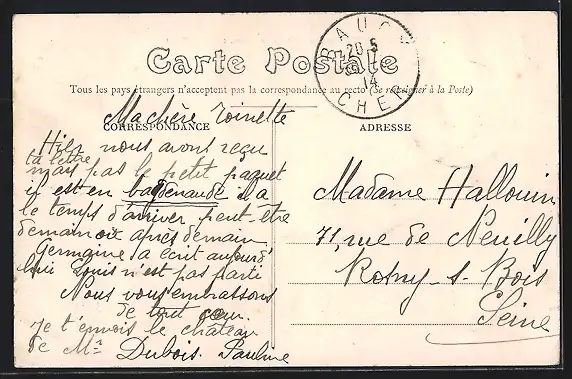 Carte Postale
Tous les pays étrangers n'acceptent pas la correspondance au recto (Se renseigner à la Poste)
CORRESPONDANCE
Ma chère Toinette
Hier nous avons reçu
ta lettre
mais pas le petit paquet
il est en bagenaude il a
le temps d'arriver peut-être
demain ou après demain
Germaine a écrit aujourd'
hui Louis n'est pas parti
Nous vous embrassons
de tout cœur.
Je t'envois le château
de Mr Dubois. Pauline
BAUGY
20-5
14
CHER
ADRESSE
Madame Hallouin
71, rue de Neuilly
Rosny-s-Bois
Seine